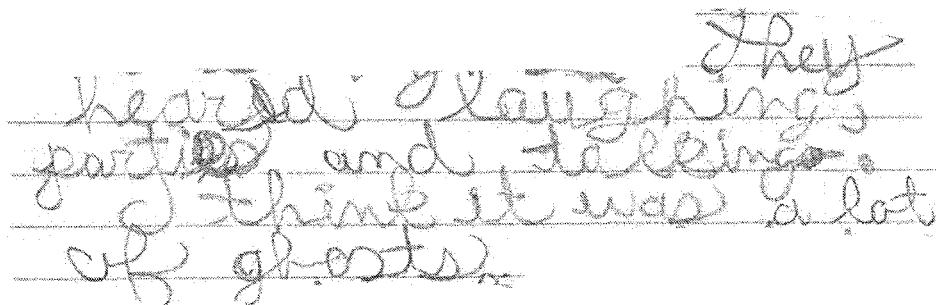 They
heard laughing,
parties and talking.
I think it was a lot
of ghosts.